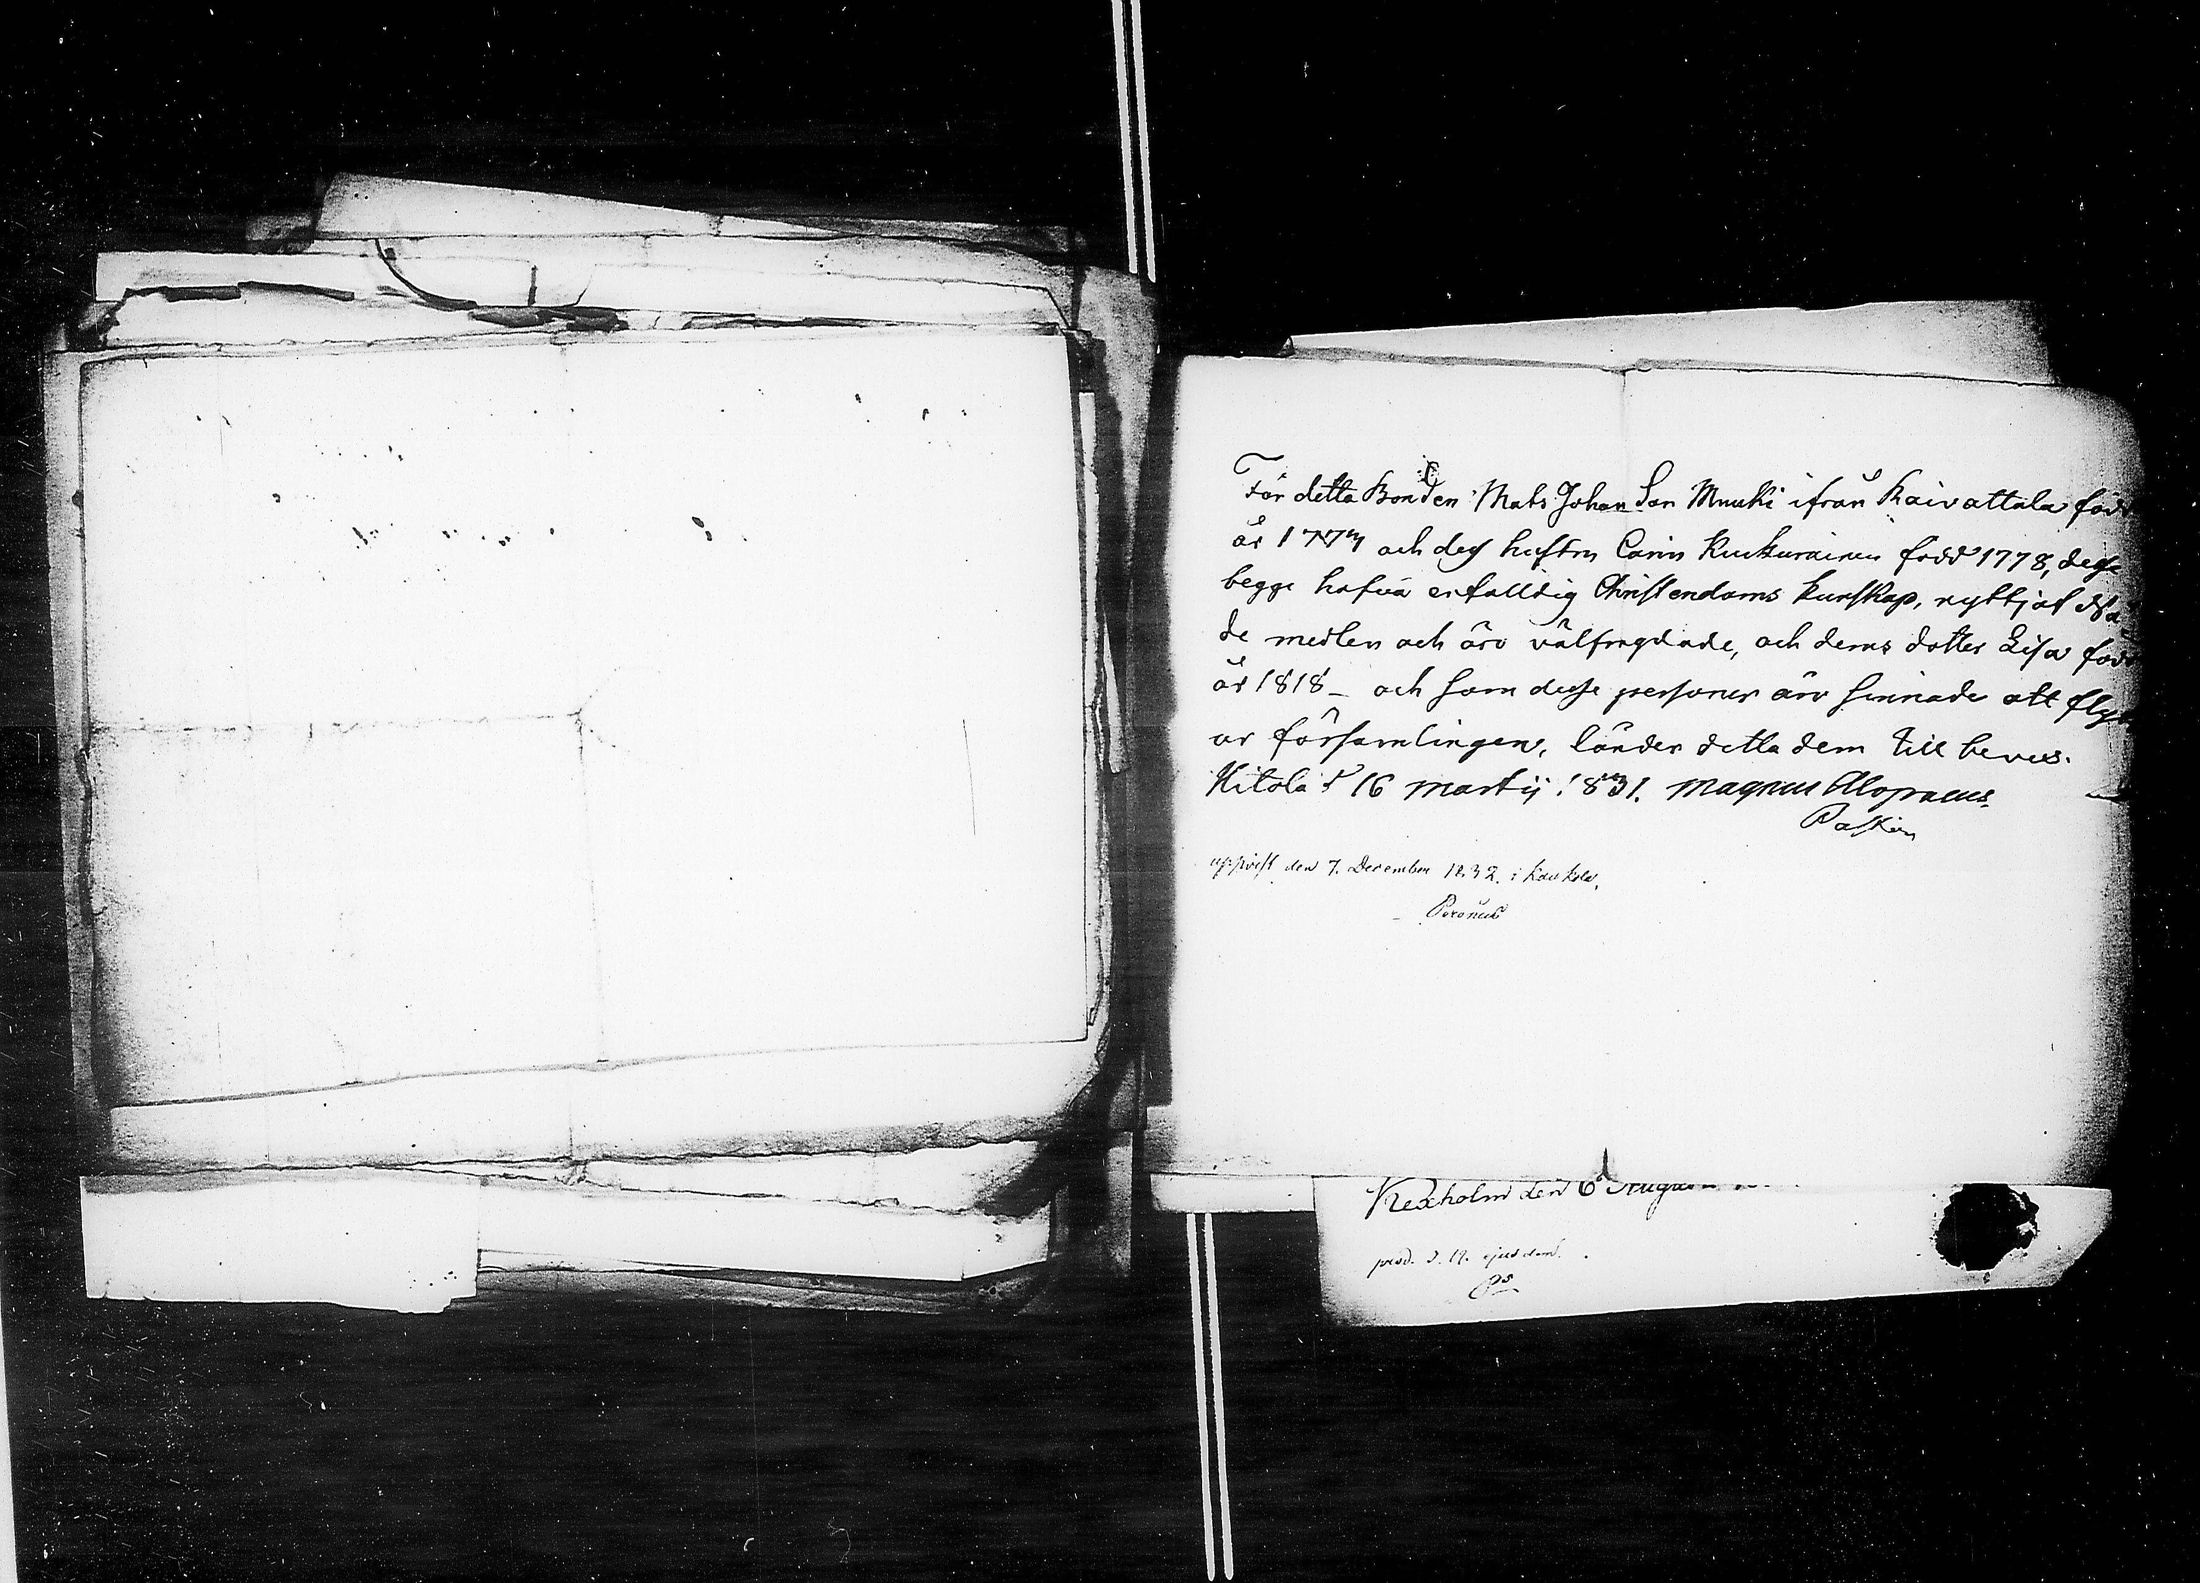 För detta Bonden Mats Johan Son Muuki ifrån Kaivattala föd
år 1777 och dess hustru Carin Kuckurainen född 1778, desse
begge hafva enfalldig Christendoms kunskap, nyttjat Nå
de medlen och äro välfregdade, och deras dotter Lisa föd
år 1818 – och som desse personer äro sinnade att fly
ur församlingen, länder detta dem till bevis.
Hitola d 16 Martij 1831. Magnus Alopaeus
Pastor
uppvist den 7. December 1832. i Kaukola.
Poronius
Kexholm den 6 Augu
prod. d. 19. ejusdem.
Ps